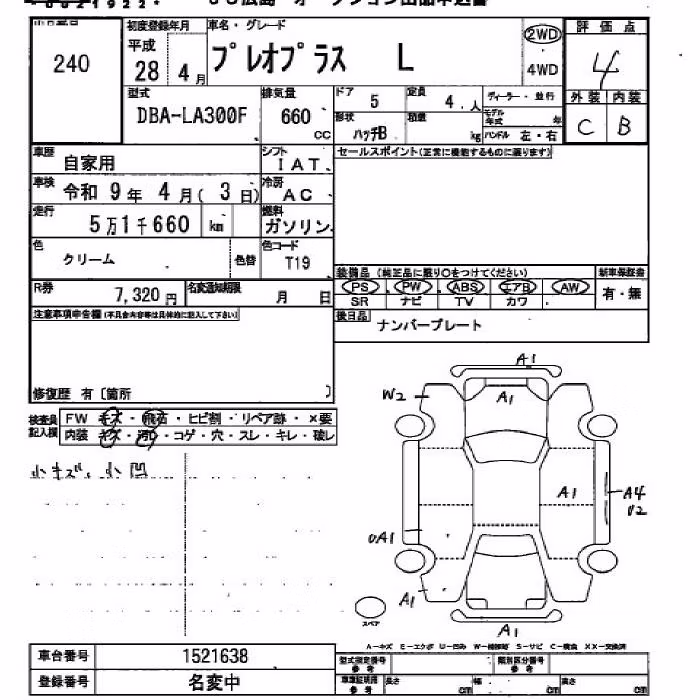 240
初度登録年月
平成
28 4月
車名・グレード
プレオプラス L
2WD
4WD
評価点
4
外装 内装
C B
型式
DBA-LA300F
排気量
660
cc
ドア 5
定員 4.人
形状 ハッチB
積載 kg
ディーラー・並行
モデル年式 年
ハンドル 左・右
車歴
自家用
シフト
IAT
セールスポイント(正常に機能するものに限ります)
車検
令和 9年 4月( 3日)
冷房
AC
走行
5万1千660 km
燃料
ガソリン
色
クリーム
色替
色コード
T19
装備品(純正品に限り○をつけてください)
PS PW ABS エアB AW
SR ナビ TV カワ
新車保証書
有・無
R券
7,320円
名変通知期限
月 日
後日品
ナンバープレート
注意事項申告欄(不具合内容等は具体的に記入して下さい)
修復歴 有〔箇所 〕
検査員記入欄
FW キズ・飛石・ヒビ割・リペア跡・×要
内装 キズ・汚れ・コゲ・穴・スレ・キレ・破レ
小キズ、小凹
A1
W2
A1
A1
A4
U2
UA1
A1
A1
スペア
A-キズ E-エクボ U-凹み W-補修跡 S-サビ C-腐食 XX-交換済
車台番号 1521638
登録番号 名変中
型式指定番号 参考
類別区分番号 参考
車庫証明用 参考
長さ cm 幅 cm 高さ cm